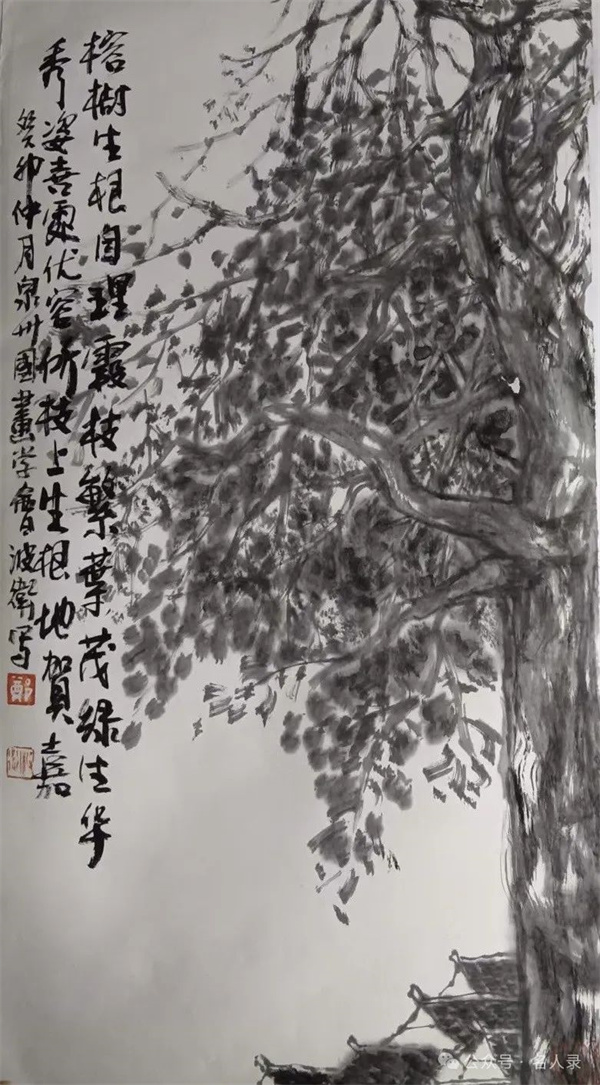 榕樹生根自理霞枝繁葉茂绿生华
秀姿喜處伏容侨枝上生根地賀嘉
癸卯仲月泉州國畫学會波衛写
鄭
公众号·名人录